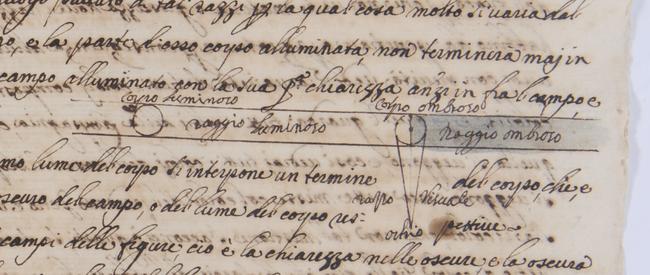 di tal razzi p la qual cosa molto si varia dal
e la parte d'esso corpo alluminata, non terminerà maj in
campo alluminato con la sua pª chiarezza anzi in fra'l campo, e
corpo luminoso corpo ombroso
raggio luminoso raggio ombroso
mo lume del corpo s'interpone un termine del corpo, che, e
raggio visuale
oscuro del campo, o del lume del corpo
ochio
campi delle figure, cio è la chiarezza nelle oscure e la oscura